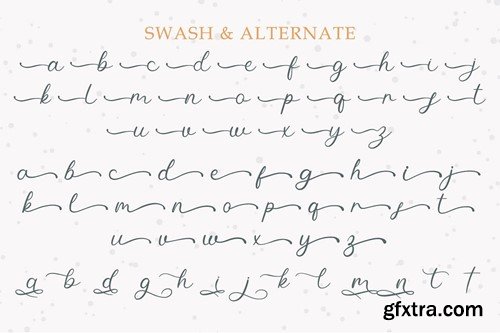 SWASH & ALTERNATE
a b c d e f g h i j
k l m n o p q r s t
u v w x y z
a b c d e f g h i j
k l m n o p q r s t
u v w x y z
a b d g h i j k l m n t t
gfxtra.com